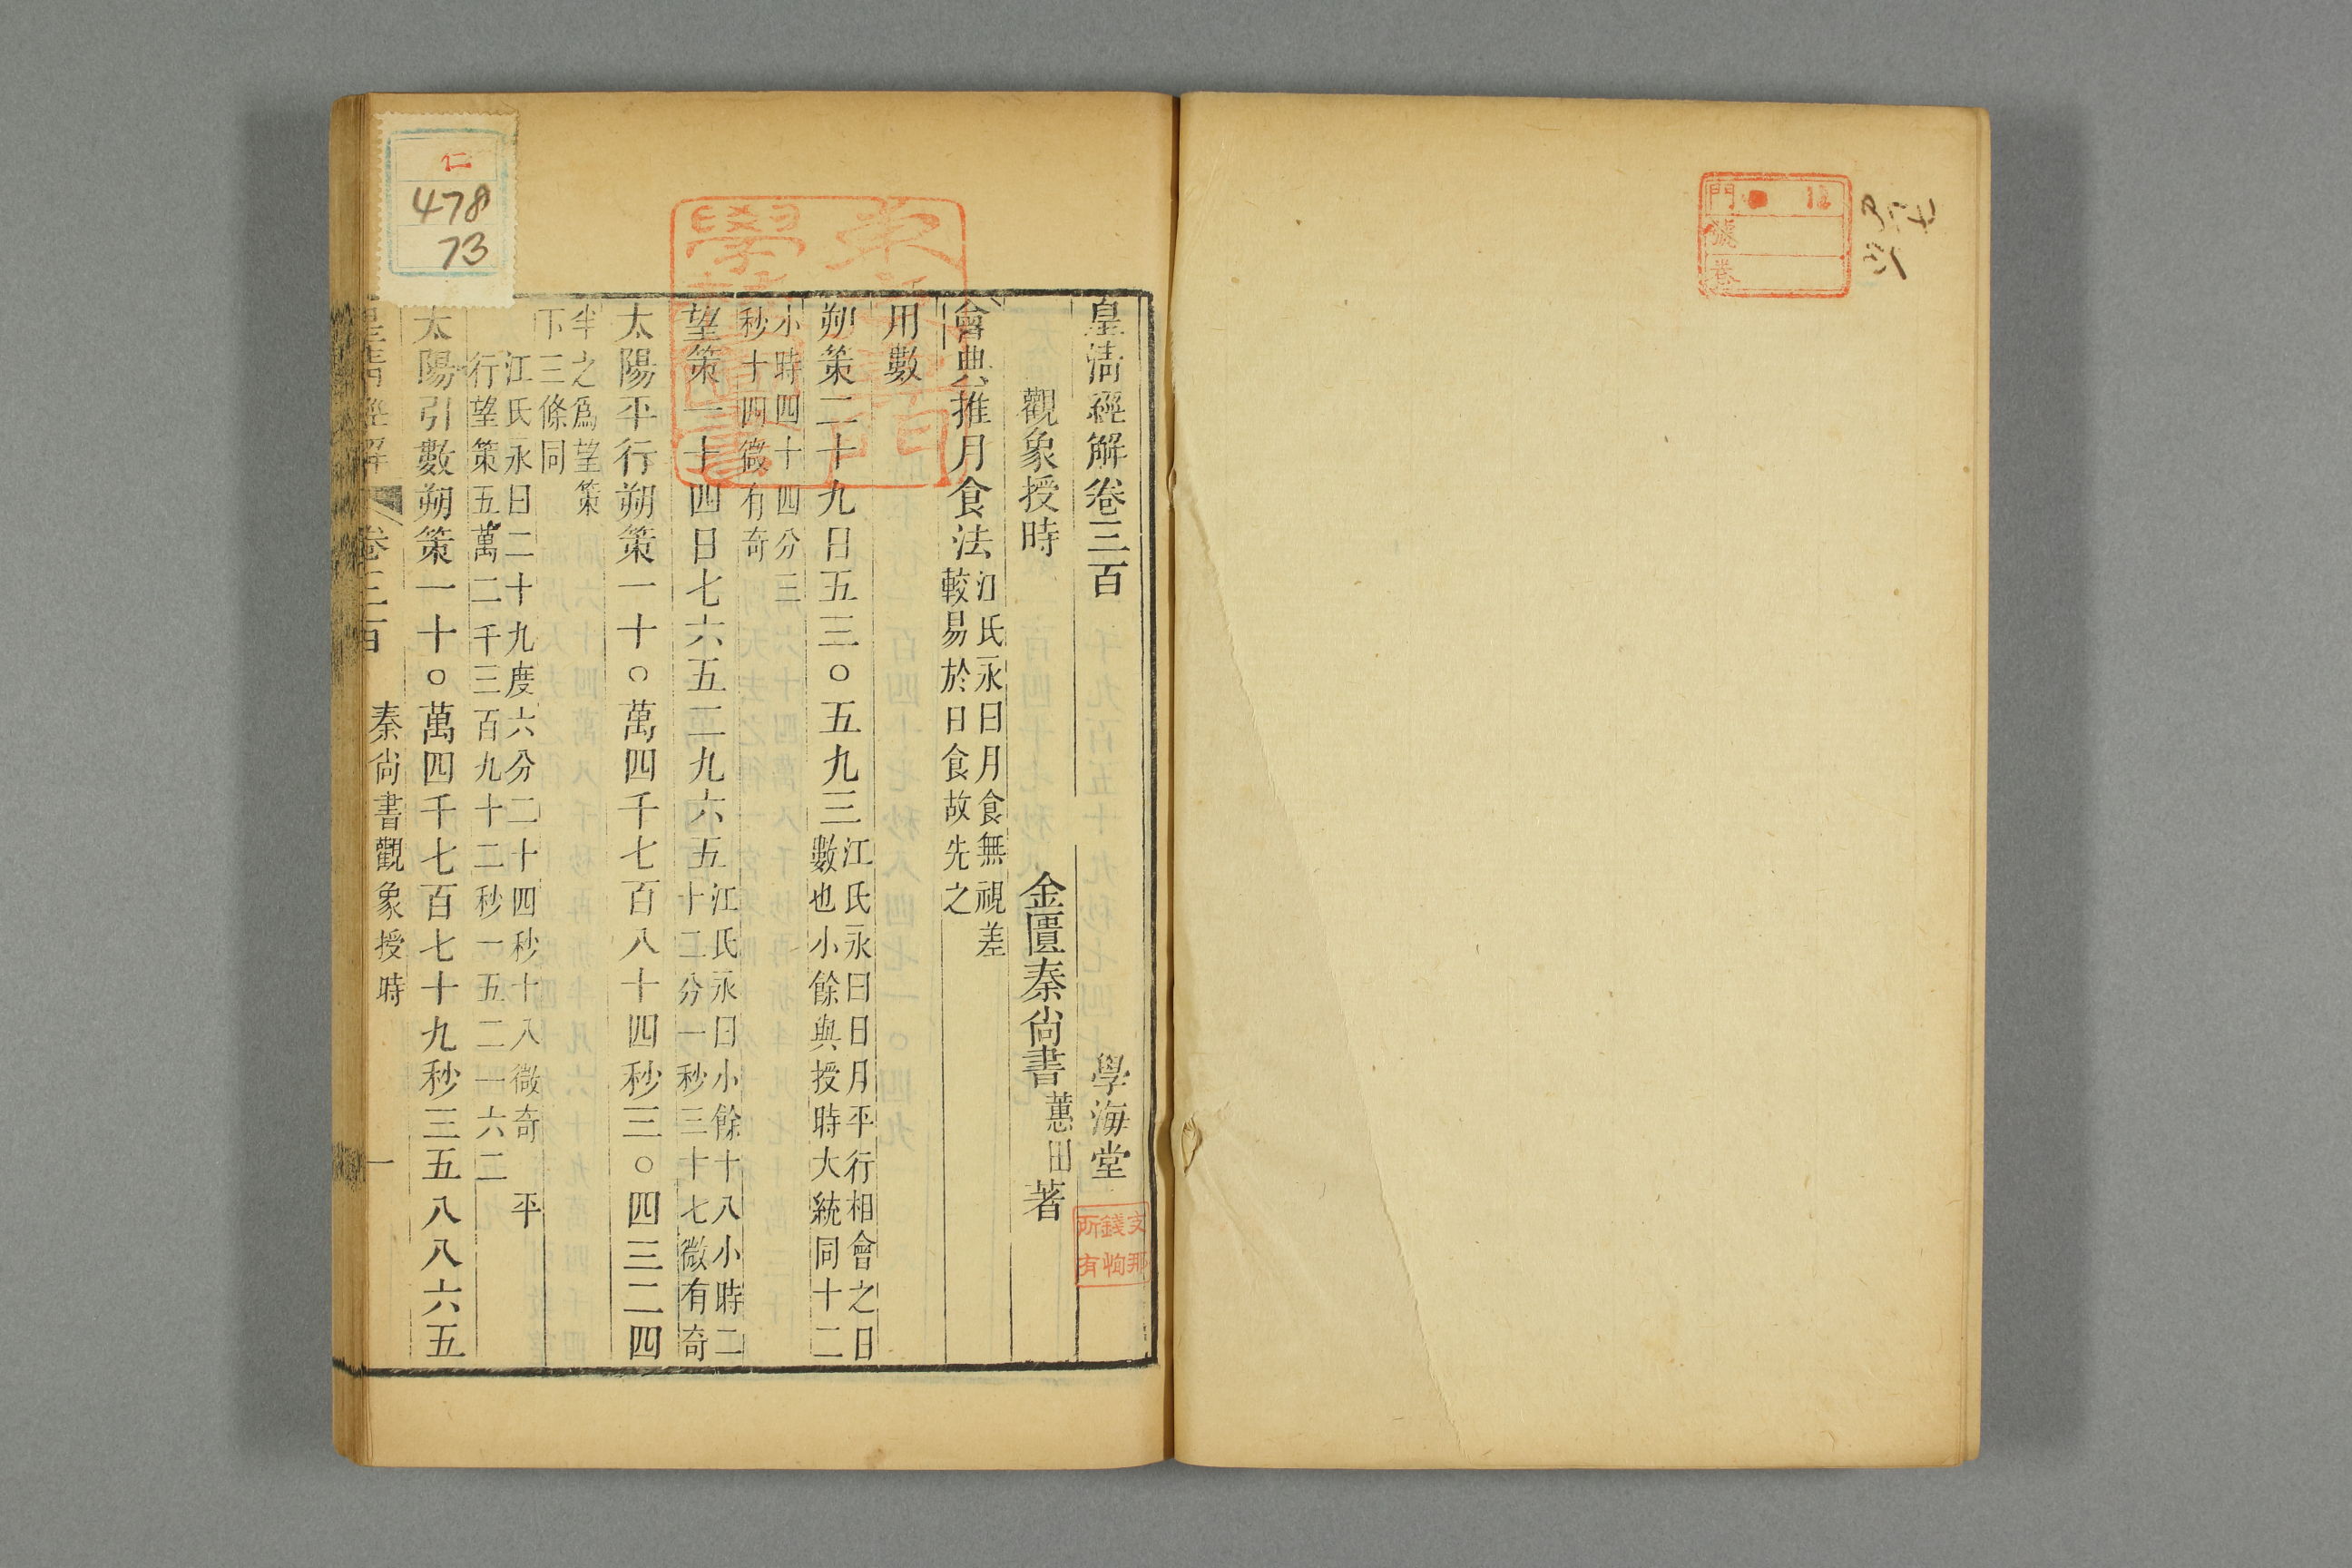 門 12
號
卷
皇淸經解卷三百 學海堂
支那
錢恂
所有
觀象授時 金匱秦尙書蕙田著
會典推月食法江氏永曰月食無視差
較易於日食故先之
用數
朔策二十九日五三〇五九三江氏永曰日月平行相會之日
數也小餘與授時大統同十二
小時四十四分三
秒十四微有奇
望策一十四日七六五二九六五江氏永曰小餘十八小時二
十二分一秒三十七微有奇
太陽平行朔策一十〇萬四千七百八十四秒三〇四三二四
半之爲望策
下三條同
江氏永曰二十九度六分二十四秒十八微奇 平
行望策五萬二千三百九十二秒一五二一六二
太陽引數朔策一十〇萬四千七百七十九秒三五八八六五
皇淸經解 卷三百 秦尙書觀象授時 一
仁
478
73